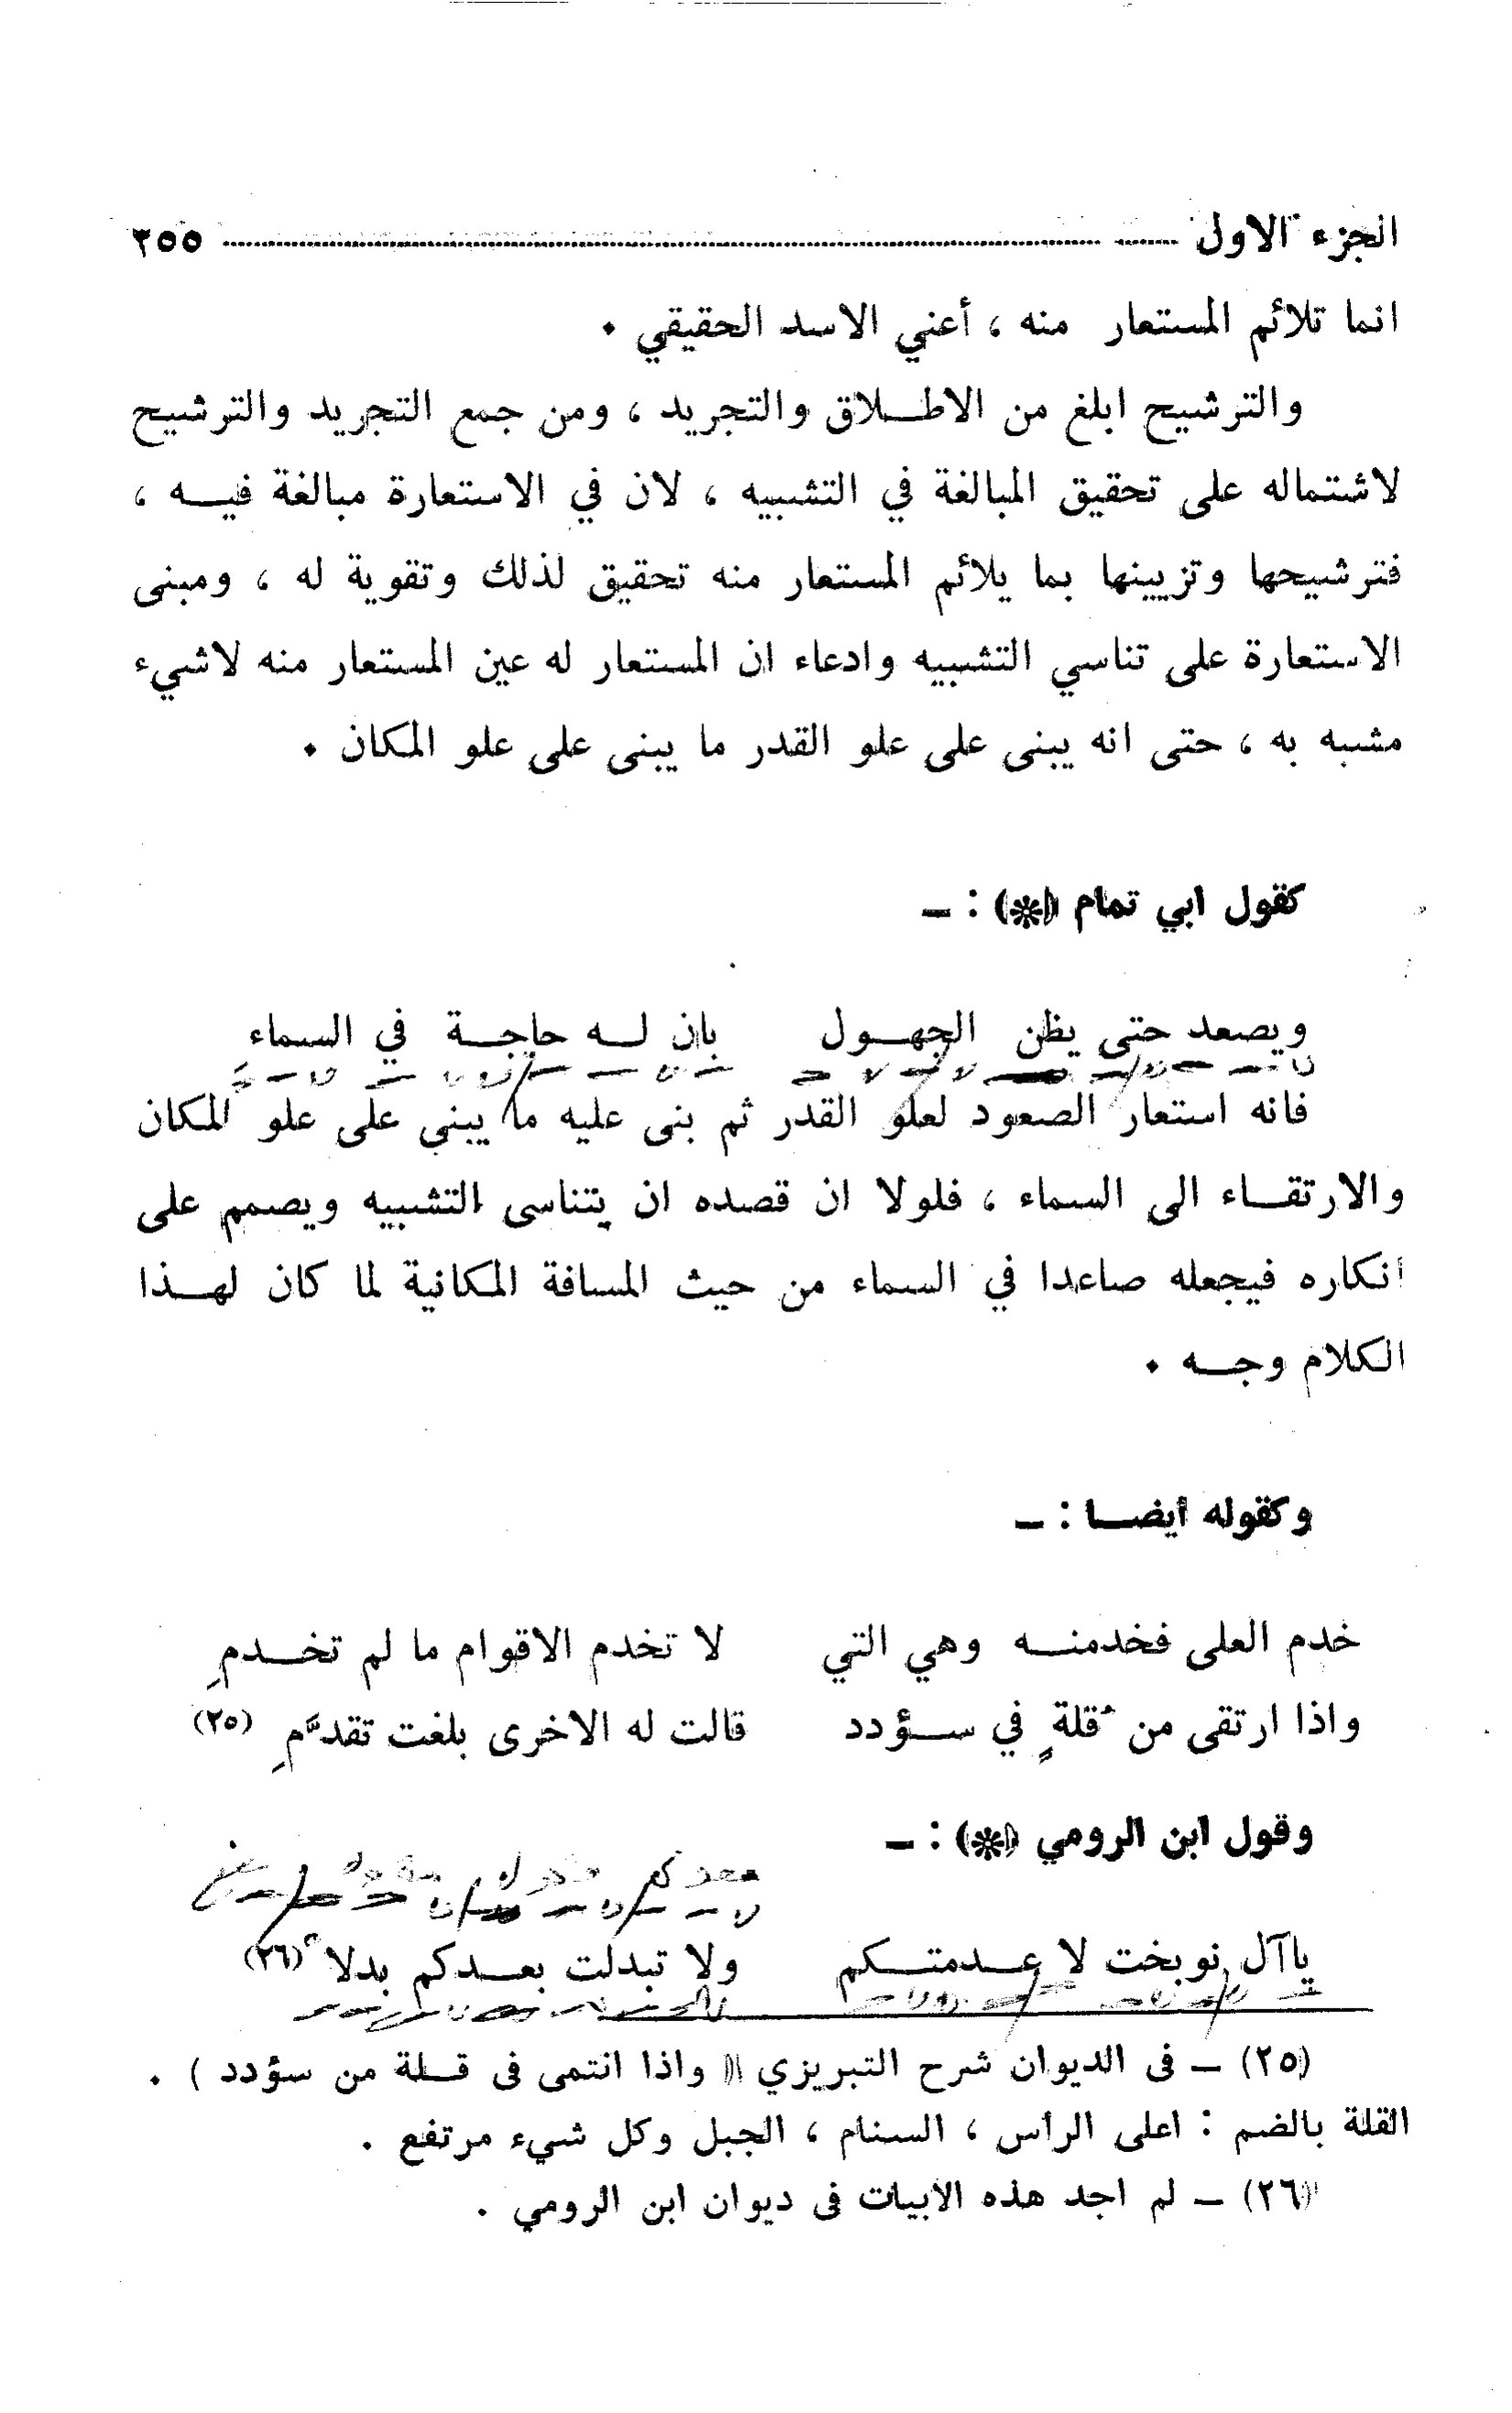 الجزء الاول ٢٥٥
انما تلائم المستعار منه ، أعني الاسد الحقيقي .
والترشيح ابلغ من الاطلاق والتجريد ، ومن جمع التجريد والترشيح
لاشتماله على تحقيق المبالغة في التشبيه ، لان في الاستعارة مبالغة فيه ،
فترشيحها وتزيينها بما يلائم المستعار منه تحقيق لذلك وتقوية له ، ومبنى
الاستعارة على تناسي التشبيه وادعاء ان المستعار له عين المستعار منه لاشيء
مشبه به ، حتى انه يبنى على علو القدر ما يبنى على علو المكان .
كقول ابي تمام (*) : –
ويصعد حتى يظن الجهول بان له حاجة في السماء
فانه استعار الصعود لعلو القدر ثم بنى عليه ما يبني على علو المكان
والارتقاء الى السماء ، فلولا ان قصده ان يتناسى التشبيه ويصمم على
انكاره فيجعله صاعدا في السماء من حيث المسافة المكانية لما كان لهذا
الكلام وجه .
وكقوله أيضا : –
خدم العلى فخدمنه وهي التي لا تخدم الاقوام ما لم تخدمِ
واذا ارتقى من قُلةٍ في سؤدد قالت له الاخرى بلغت تقدَّمِ (٢٥)
وقول ابن الرومي (*) : –
ياآل نوبخت لا عدمتكم ولا تبدلت بعدكم بدلا (٢٦)
(٢٥) – فى الديوان شرح التبريزي (( واذا انتمى فى قلة من سؤدد ) .
القلة بالضم : اعلى الرأس ، السنام ، الجبل وكل شيء مرتفع .
(٢٦) – لم اجد هذه الابيات فى ديوان ابن الرومي .